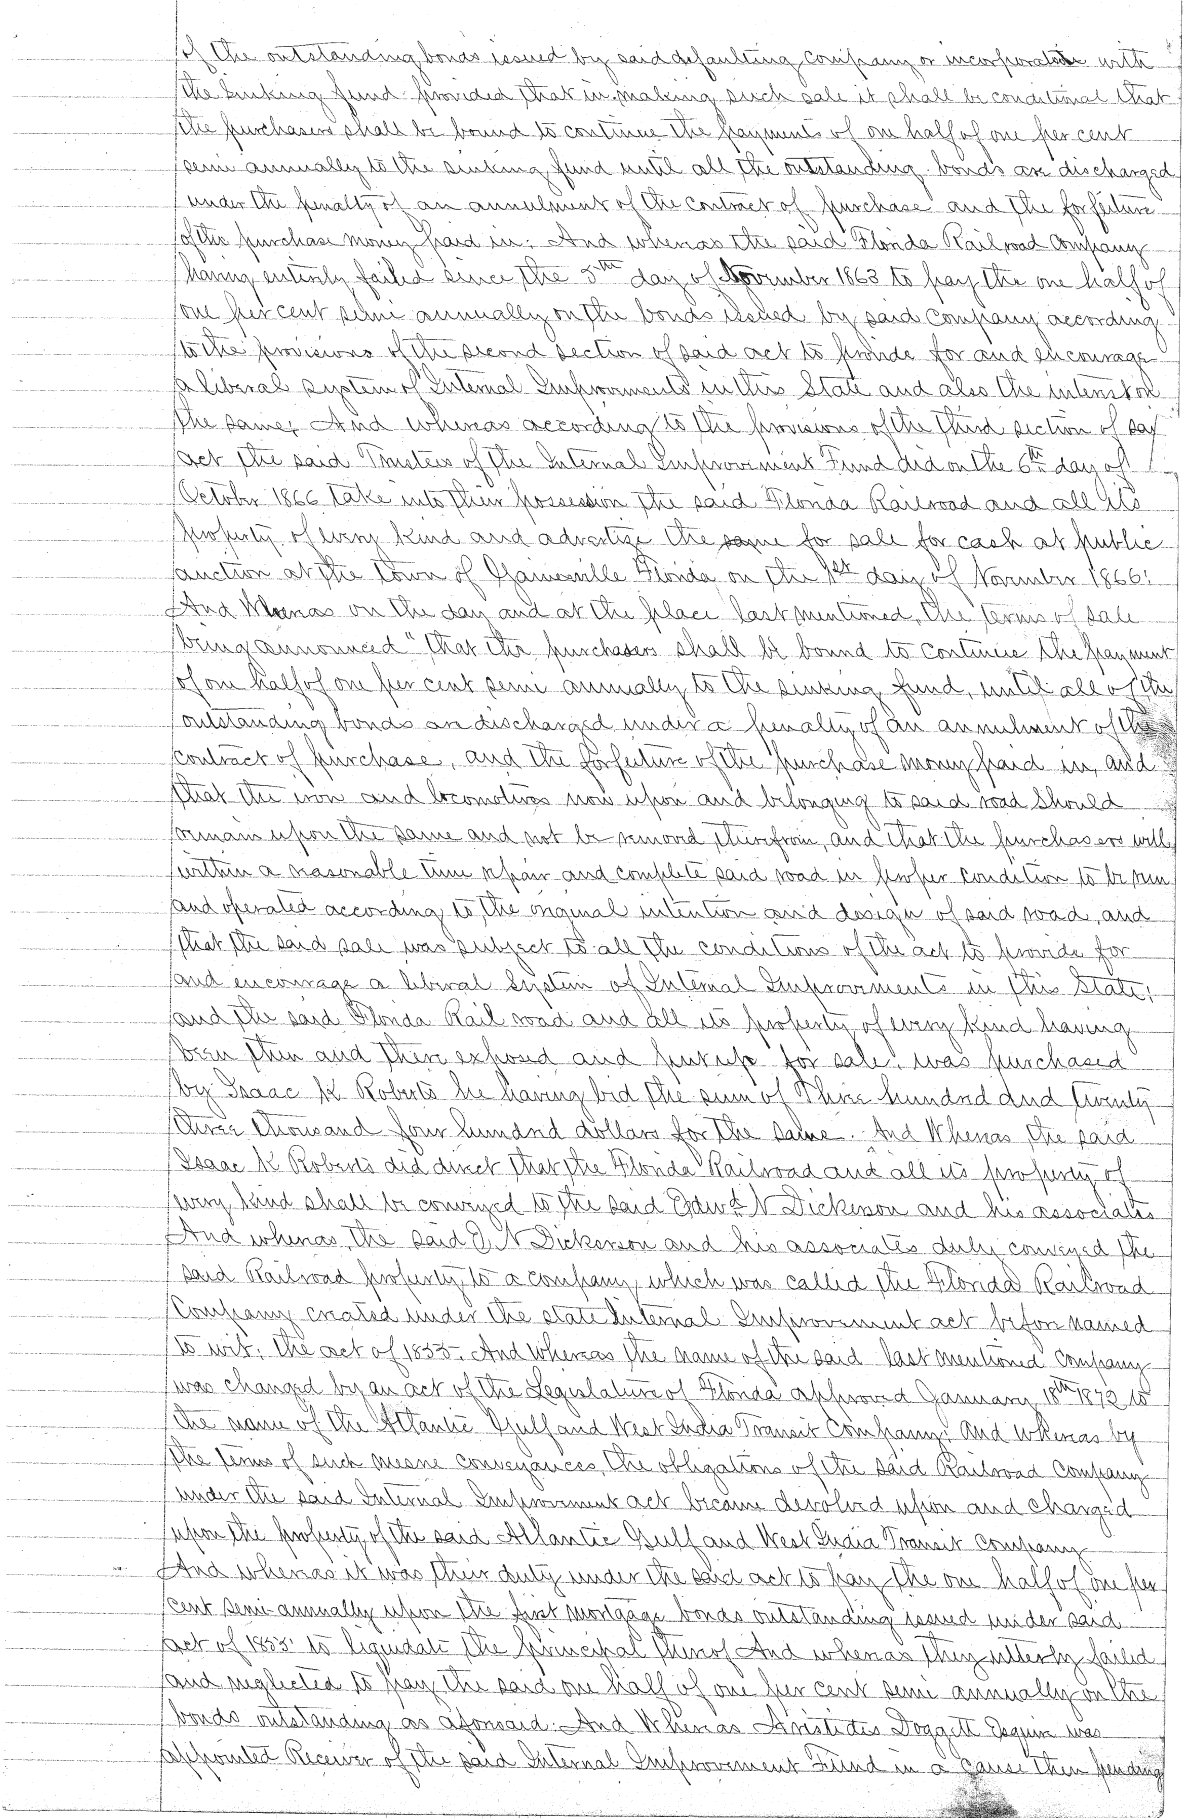 of the outstanding bonds issued by said defaulting company or incorporation with
the sinking fund provided that in making such sale it shall be conditional that
the purchasers shall be bound to continue the payments of one half of one per cent
semi annually to the sinking fund until all the outstanding bonds are discharged
under the penalty of an annulment of the contract of purchase and the forfeiture
of the purchase money paid in; And whereas the said Florida Railroad Company
having entirely failed since the 5th day of November 1863 to pay the one half of
one per cent semi annually on the bonds issued by said Company according
to the provisions of the second section of said act to provide for and encourage
a liberal system of Internal Improvements in this State and also the interest on
the same; And whereas according to the provisions of the third section of sai
act the said Trustees of the Internal Improvement Fund did on the 6th day of
October 1866 take into their possession the said Florida Railroad and all its
property of every kind and advertize the same for sale for cash at public
auction at the town of Gainesville Florida on the 1st day of November 1866:
And Whereas on the day and at the place last mentioned, the terms of sale
being announced "that the purchasers shall be bound to continue the payment
of one half of one per cent semi annually to the sinking fund, until all of the
outstanding bonds are discharged under a penalty of an annulment of the
contract of purchase, and the forfeiture of the purchase money paid in, and
that the iron and locomotives now upon and belonging to said road should
remain upon the same and not be removed therefrom, and that the purchasers will
within a reasonable time repair and complete said road in proper condition to be run
and operated according to the original intention and design of said road, and
that the said sale was subject to all the conditions of the act to provide for
and encourage a liberal System of Internal Improvements in this State;
and the said Florida Rail road and all its property of every kind having
been then and there exposed and put up for sale, was purchased
by Isaac K Roberts he having bid the sum of Three hundred and twenty
three thousand four hundred dollars for the same. And Whereas the said
Isaac K Roberts did direct that the Florida Railroad and all its property of
every kind shall be conveyed to the said Edwd N Dickerson and his associates
And whereas, the said E. N Dickerson and his associates duly conveyed the
said Railroad property to a company which was called the Florida Railroad
Company created under the state Internal Improvement act before named
to wit; the act of 1855. And Whereas the name of the said last mentioned company
was changed by an act of the Legislature of Florida approved January 18th 1872 to
the name of the Atlantic Gulf and West India Transit Company; And whereas by
the terms of such mesne conveyances, the obligations of the said Railroad Company
under the said Internal Improvement act became devolved upon and charged
upon the property of the said Atlantic Gulf and West India Transit company
And whereas it was their duty under the said act to pay the one half of one per
cent semi-annually upon the first mortgage bonds outstanding issued under said
act of 1855 to liquidate the principal thereof And whereas they utterly failed
and neglected to pay the said one half of one per cent semi annually on the
bonds outstanding as aforesaid: And Whereas Aristides Doggett Esquire was
appointed Receiver of the said Internal Improvement Fund in a cause then pending